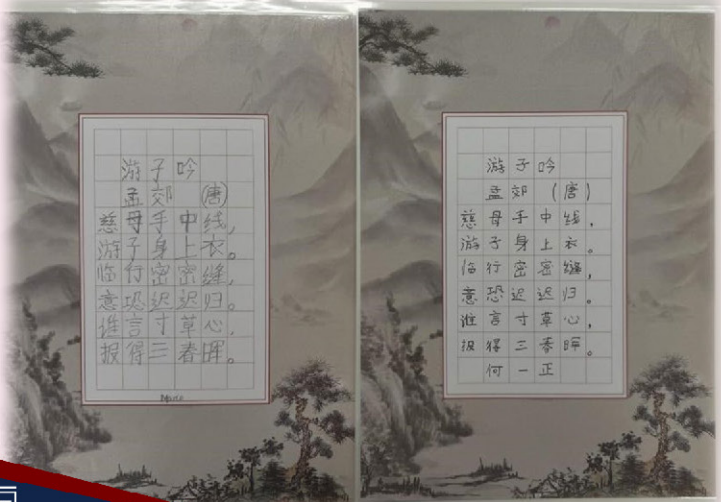 游子吟
孟郊 (唐)
慈母手中线,
游子身上衣。
临行密密缝,
意恐迟迟归。
谁言寸草心,
报得三春晖。
游子吟
孟郊 (唐)
慈母手中线,
游子身上衣。
临行密密缝,
意恐迟迟归。
谁言寸草心,
报得三春晖。
何一正